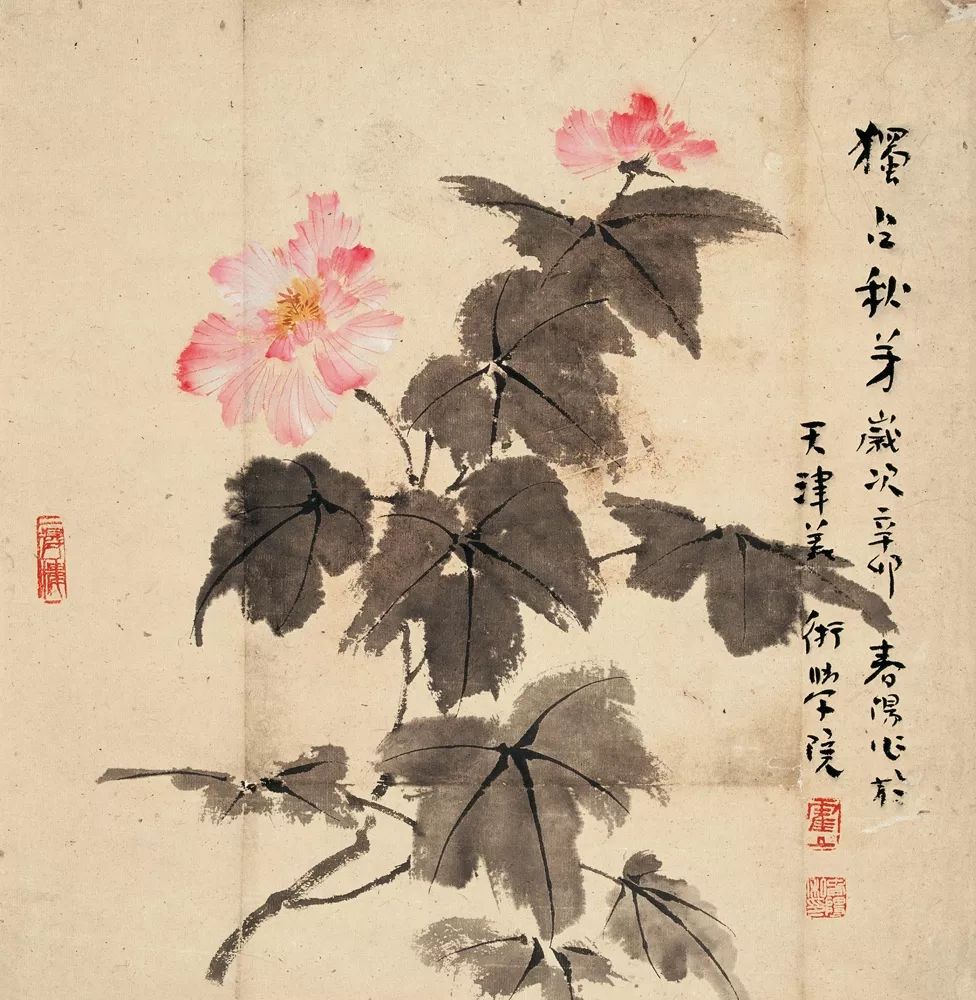 獨占秋芳歲次辛卯春陽作於
天津美術學院